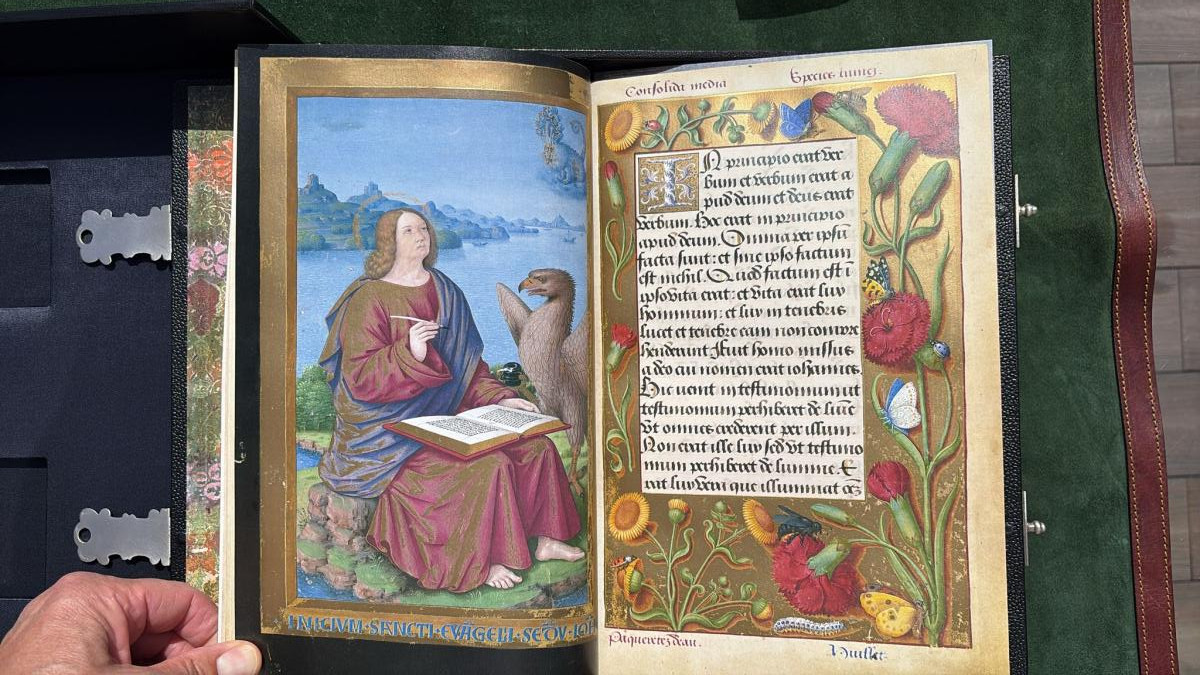 INICIVM·SANCTI·EVÃGELII·SECṼ·
Consolida media
Species tunici.
IN principio erat ver
bum et verbum erat a
pud deum et deus erat
verbum. Hoc erat in principio
apud deum. Omnia per ipsũ
facta sunt: et sine ipso factum
est nichil. Quod factum est ĩ
ipso vita erat: et vita erat lux
hominum: et lux in tenebris
lucet et tenebre eam non compre
henderunt Fuit homo missus
a deo cui nomen erat iohannes.
Hic venit in testimonium ut
testimonium perhiberet de lumĩe
vt omnes crederent per illum.
Non erat ille lux sed vt testimo
nium perhiberet de lumine. E
rat lux vera que illuminat oẽz
Paqueretez deau.